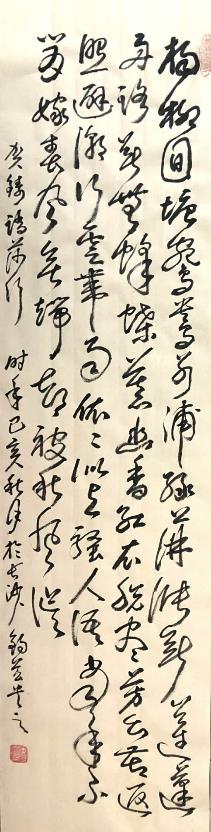 杨柳回塘鸳鸯别浦绿萍涨断莲
舟路断无蜂蝶慕幽香红衣脱尽芳心苦返
照迎潮行云带雨依依似与骚人语当年不
肯嫁春风无端却被秋风误
贺铸踏莎行 时年己亥秋月於长沙